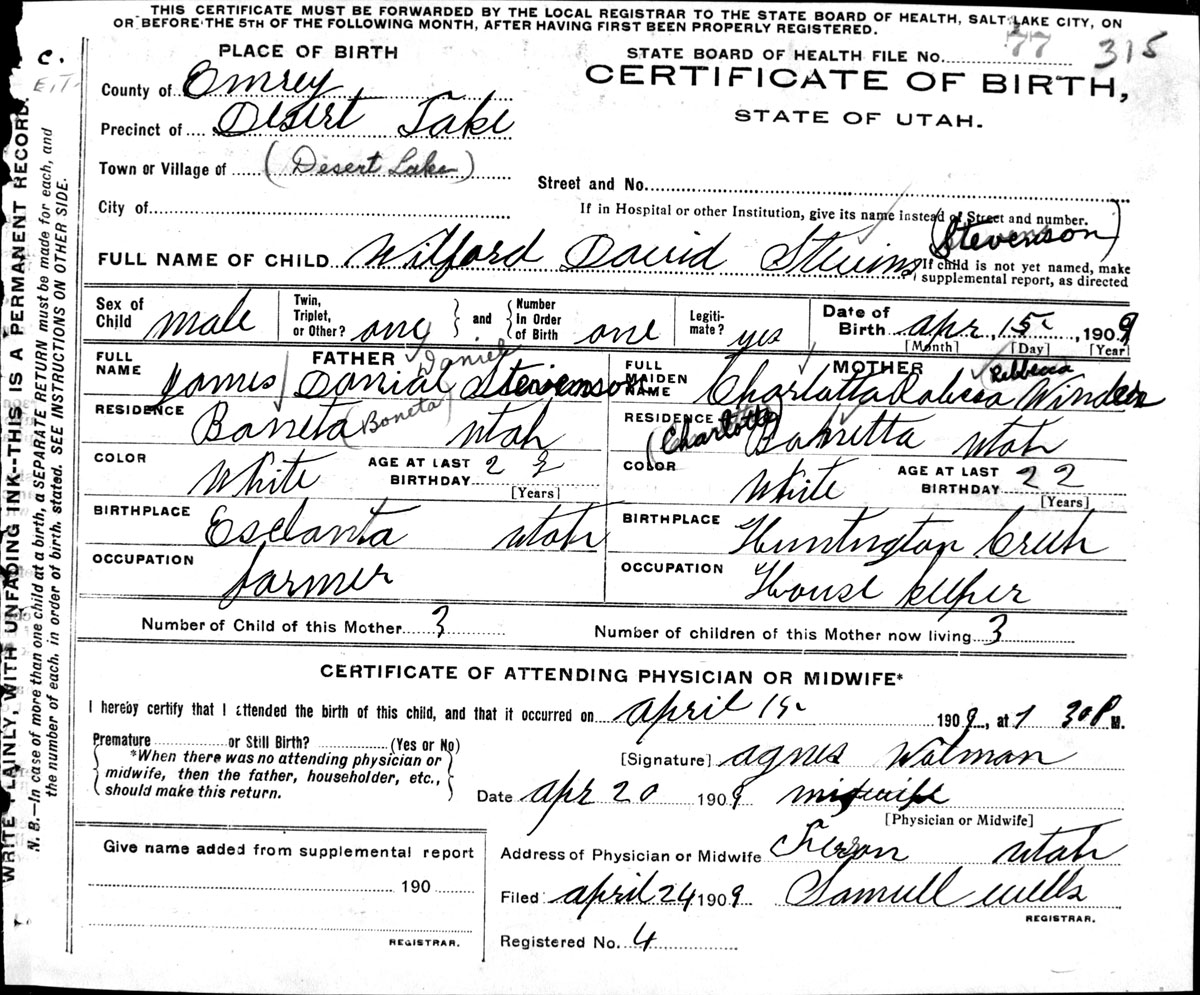 THIS CERTIFICATE MUST BE FORWARDED BY THE LOCAL REGISTRAR TO THE STATE BOARD OF HEALTH, SALT LAKE CITY, ON
OR BEFORE THE 5TH OF THE FOLLOWING MONTH, AFTER HAVING FIRST BEEN PROPERLY REGISTERED.
C.
E.T.
PLACE OF BIRTH
STATE BOARD OF HEALTH FILE No. 77 315
CERTIFICATE OF BIRTH,
STATE OF UTAH.
County of Emrey
Precinct of Desert Lake
Town or Village of (Desert Lake)
Street and No.
City of
If in Hospital or other Institution, give its name instead of Street and number.
(Stevenson)
FULL NAME OF CHILD Wilford David Stevens
If child is not yet named, make supplemental report, as directed
Sex of Child male
Twin, Triplet, or Other? one and Number In Order of Birth one
Legitimate? yes
Date of Birth apr, 15, 1909
[Month] [Day] [Year]
FATHER
Daniel
FULL NAME James Danial Stevenson
RESIDENCE Boneta (Boneta) utah
COLOR White AGE AT LAST BIRTHDAY 2
[Years]
BIRTHPLACE Esclanta utah
OCCUPATION farmer
MOTHER
Rebbecca
FULL MAIDEN NAME Charlotta Rabecca Winder
(Charlotte)
RESIDENCE utah
COLOR White AGE AT LAST BIRTHDAY 22
[Years]
BIRTHPLACE Huntington Creek
OCCUPATION House keeper
Number of Child of this Mother 3
Number of children of this Mother now living 3
CERTIFICATE OF ATTENDING PHYSICIAN OR MIDWIFE*
I hereby certify that I attended the birth of this child, and that it occurred on april 15 1909, at 1 30 P M.
Premature or Still Birth? (Yes or No)
*When there was no attending physician or midwife, then the father, householder, etc., should make this return.
[Signature] agnes Wolman
Date apr 20 1909 midwife
[Physician or Midwife]
Give name added from supplemental report
190
REGISTRAR.
Address of Physician or Midwife utah
Filed april 24 1909 Samuell wells
REGISTRAR.
Registered No. 4
WRITE PLAINLY, WITH UNFADING INK--THIS IS A PERMANENT RECORD.
N. B.—In case of more than one child at a birth, a SEPARATE RETURN must be made for each, and
the number of each, in order of birth, stated. SEE INSTRUCTIONS ON OTHER SIDE.